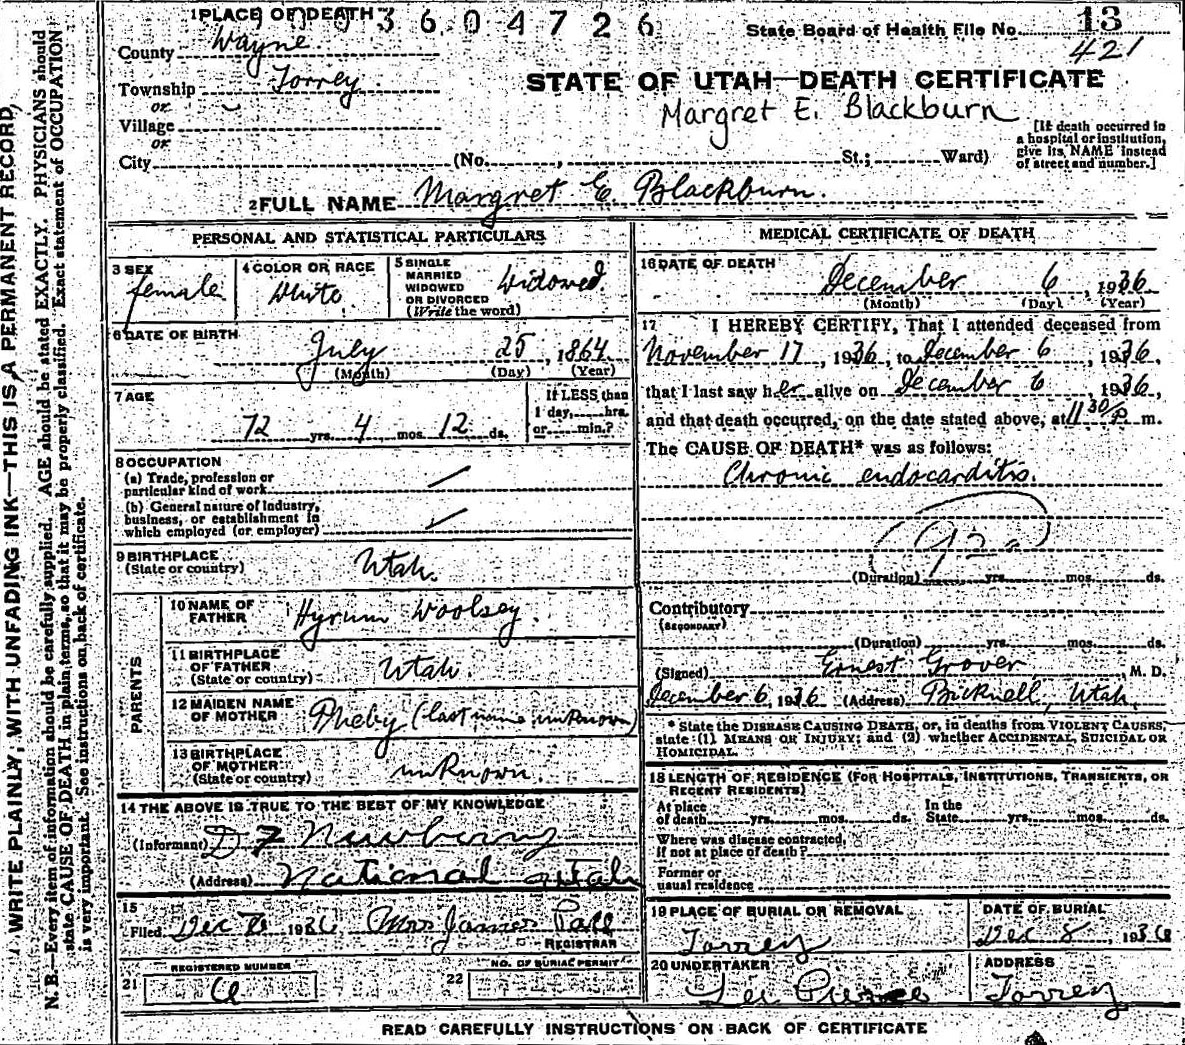 1 PLACE OF DEATH
3604726
State Board of Health File No. 13
421
County Wayne
Township Torrey
or
Village
or
City (No. , St.; Ward)
STATE OF UTAH—DEATH CERTIFICATE
Margret E. Blackburn
[If death occurred in
a hospital or institution,
give its NAME instead
of street and number.]
2 FULL NAME Margret E. Blackburn.
PERSONAL AND STATISTICAL PARTICULARS
3 SEX
female
4 COLOR OR RACE
White
5 SINGLE
MARRIED
WIDOWED
OR DIVORCED
(Write the word)
Widowed.
6 DATE OF BIRTH
July 25, 1864
(Month) (Day) (Year)
7 AGE
72 yrs. 4 mos. 12 ds.
If LESS than
1 day, hrs.
or min.?
8 OCCUPATION
(a) Trade, profession or
particular kind of work
(b) General nature of industry,
business, or establishment in
which employed (or employer)
9 BIRTHPLACE
(State or country) Utah.
PARENTS
10 NAME OF
FATHER Hyrum Woolsey.
11 BIRTHPLACE
OF FATHER
(State or country) Utah.
12 MAIDEN NAME
OF MOTHER Pheby (last name unknown)
13 BIRTHPLACE
OF MOTHER
(State or country) unknown.
14 THE ABOVE IS TRUE TO THE BEST OF MY KNOWLEDGE
(Informant) D F Newberry
(Address) National Utah
15
Filed Dec 1936 Mrs James Pace
REGISTRAR
REGISTERED NUMBER
21
22 NO. OF BURIAL PERMIT
MEDICAL CERTIFICATE OF DEATH
16 DATE OF DEATH
December 6, 1936
(Month) (Day) (Year)
17 I HEREBY CERTIFY, That I attended deceased from
November 17, 1936, to December 6, 1936,
that I last saw her alive on December 6, 1936,
and that death occurred, on the date stated above, at 11 30 P m.
The CAUSE OF DEATH* was as follows:
Chronic endocarditis.
92a
(Duration) yrs. mos. ds.
Contributory
(SECONDARY)
(Duration) yrs. mos. ds.
(Signed) Ernest Grover, M. D.
December 6, 1936 (Address) Bicknell, Utah.
* State the DISEASE CAUSING DEATH, or, in deaths from VIOLENT CAUSES,
state (1) MEANS OR INJURY; and (2) whether ACCIDENTAL, SUICIDAL OR
HOMICIDAL.
18 LENGTH OF RESIDENCE (FOR HOSPITALS, INSTITUTIONS, TRANSIENTS, OR
RECENT RESIDENTS)
At place
of death yrs. mos. ds.
In the
State yrs. mos. ds.
Where was disease contracted,
if not at place of death?
Former or
usual residence
19 PLACE OF BURIAL OR REMOVAL
Torrey
DATE OF BURIAL
Dec 8, 1936
20 UNDERTAKER
Lee Pierce
ADDRESS
Torrey
READ CAREFULLY INSTRUCTIONS ON BACK OF CERTIFICATE
WRITE PLAINLY, WITH UNFADING INK—THIS IS A PERMANENT RECORD,
N. B.—Every item of information should be carefully supplied. AGE should be stated EXACTLY. PHYSICIANS should
state CAUSE OF DEATH in plain terms, so that it may be properly classified. Exact statement of OCCUPATION
is very important. See instructions on back of certificate.